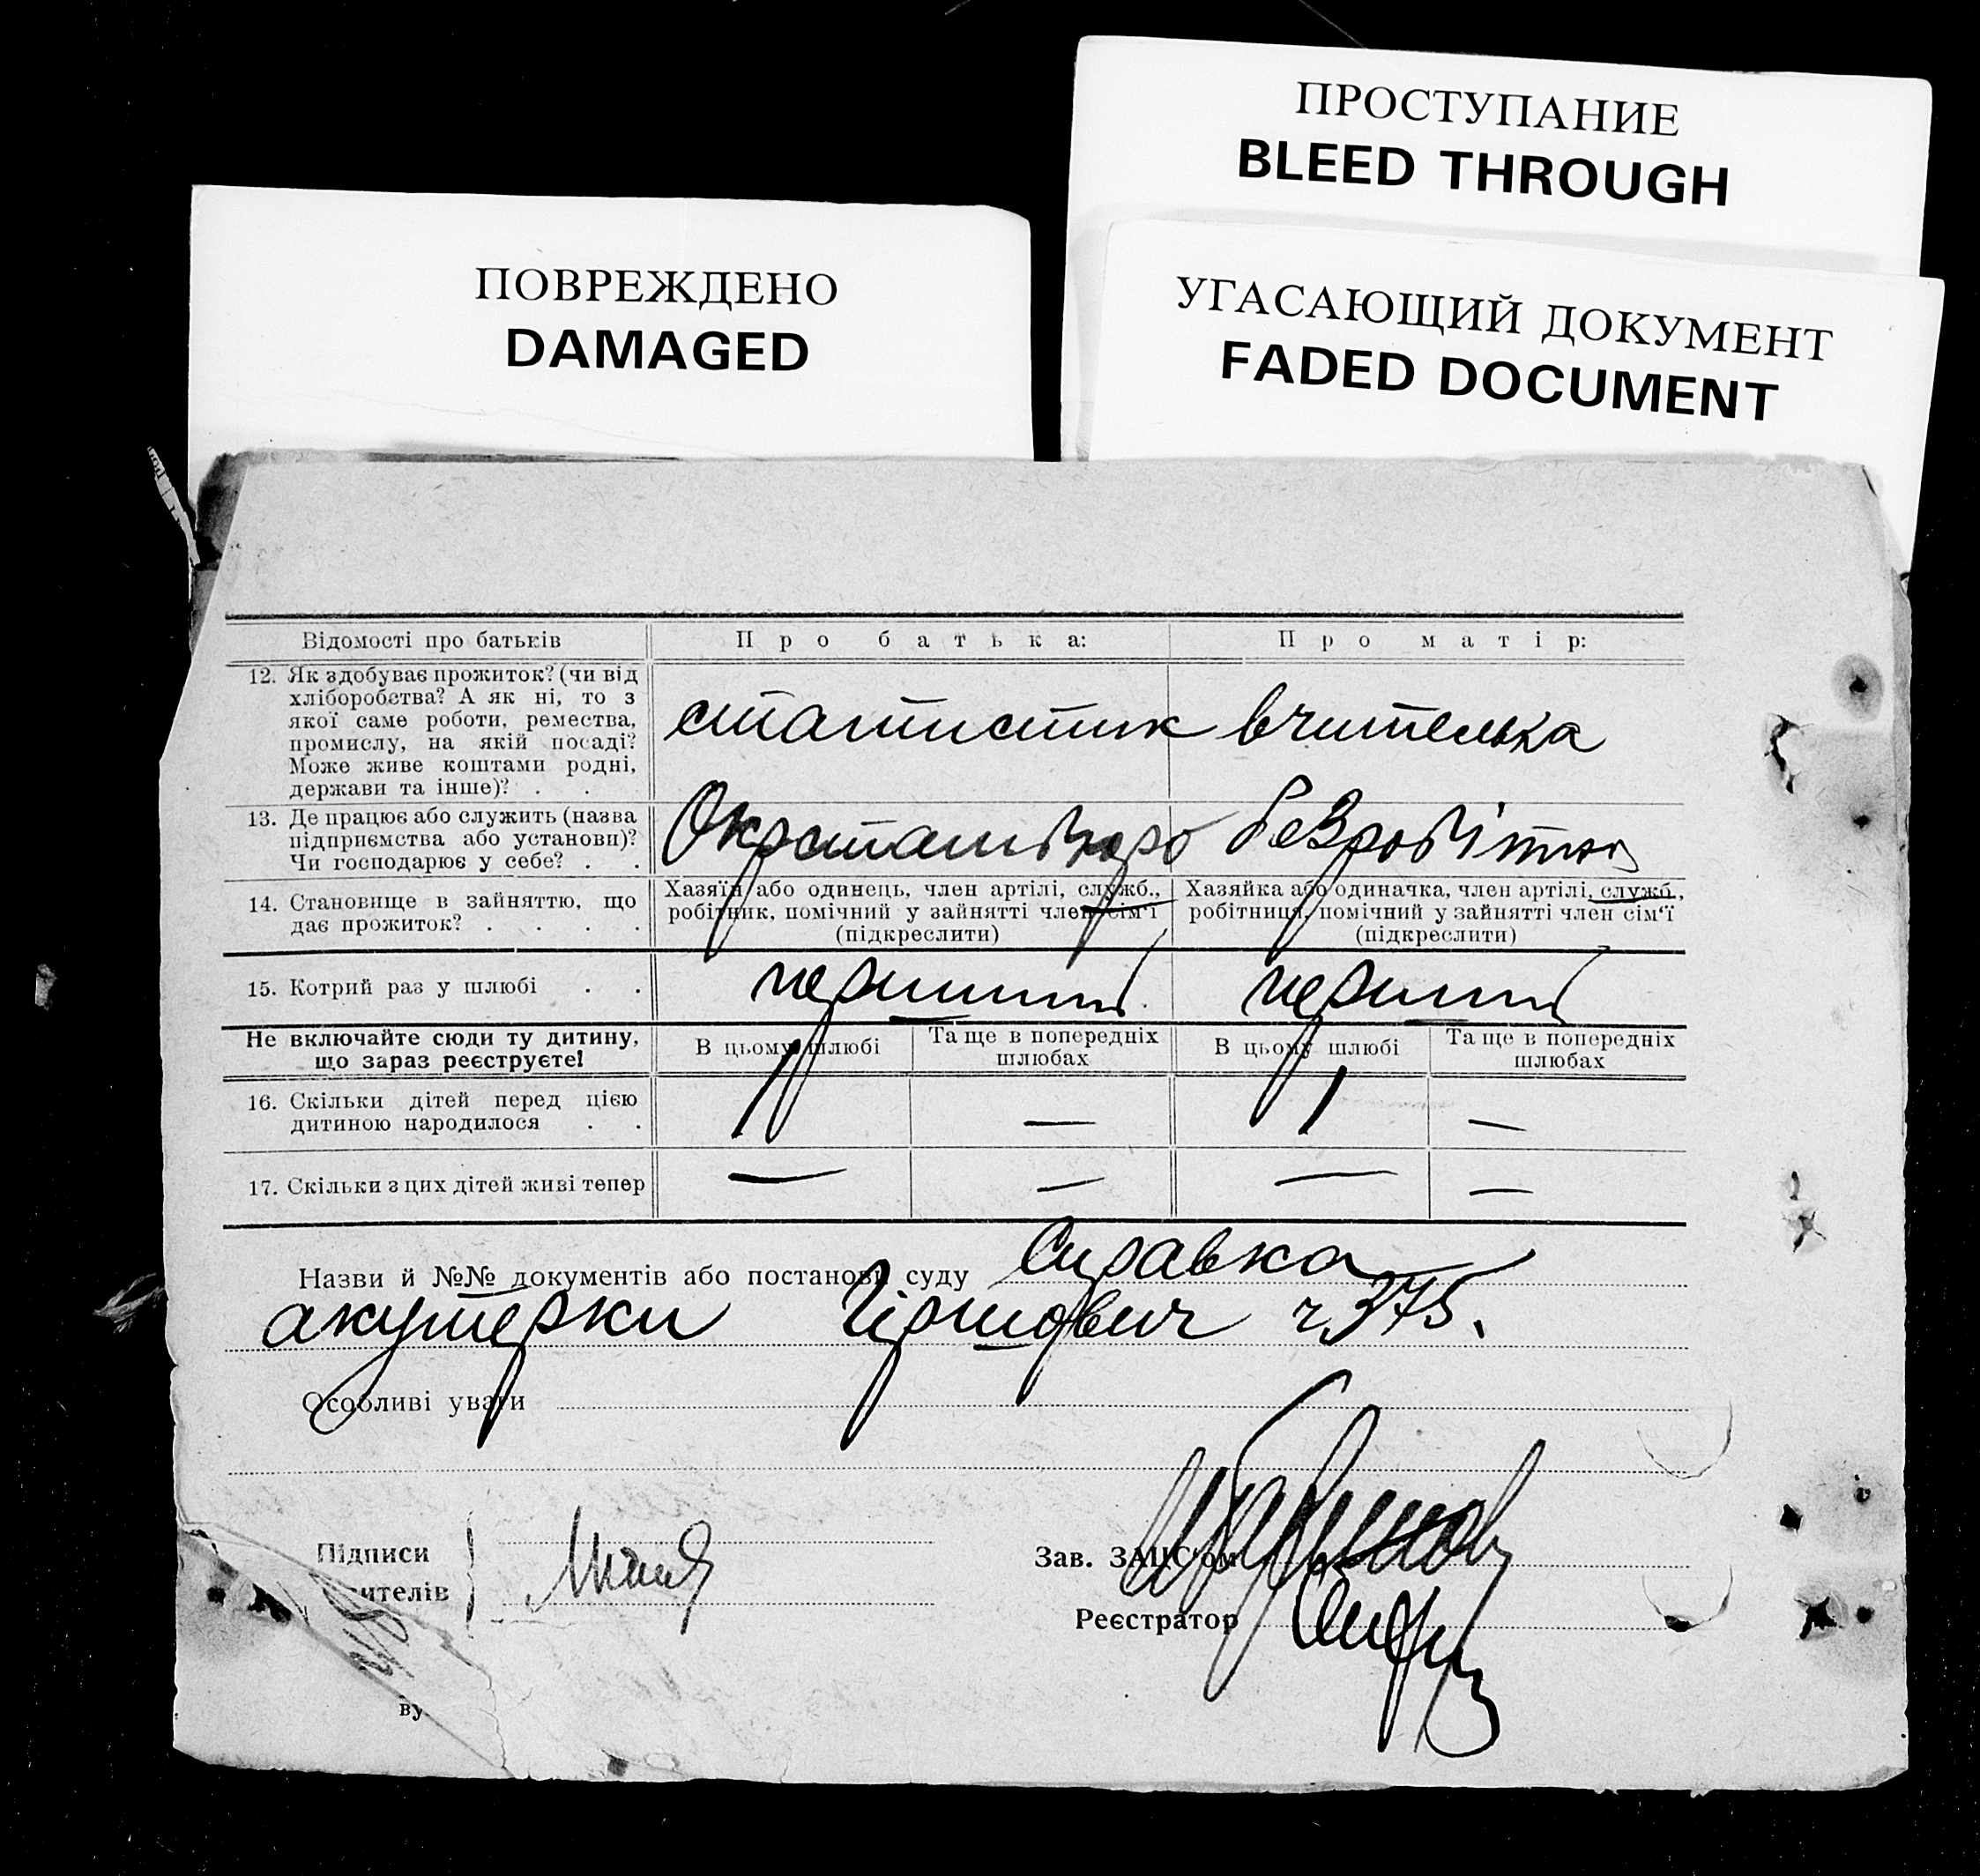 ПРОСТУПАНИЕ
BLEED THROUGH
ПОВРЕЖДЕНО
DAMAGED
УГАСАЮЩИЙ ДОКУМЕНТ
FADED DOCUMENT
Відомості про батьків Про батька: Про матір:
12. Як здобуває прожиток? (чи від
хліборобства? А як ні, то з
якої саме роботи, ремества,
промислу, на якій посаді?
Може живе коштами родні,
держави та інше)? . .
статистик вчителька
13. Де працює або служить (назва
підприємства або установи)?
Чи господарює у себе? . .
Окрстатбюро безробітна
14. Становище в зайняттю, що
дає прожиток? . . . .
Хазяїн або одинець, член артілі, служб.,
робітник, помічний у зайнятті член сім'ї
(підкреслити)
Хазяйка або одиначка, член артілі, служб.,
робітниця, помічний у зайнятті член сім'ї
(підкреслити)
15. Котрий раз у шлюбі . . перший перший
Не включайте сюди ту дитину,
що зараз реєструєте!
В цьому шлюбі Та ще в попередніх
шлюбах
В цьому шлюбі Та ще в попередніх
шлюбах
16. Скільки дітей перед цією
дитиною народилося . . 1 — 1 —
17. Скільки з цих дітей живі тепер — — — —
Назви й №№ документів або постанови суду Справка
акушерки Гіршович ч 375.
Особливі уваги
Підписи
ителів
Зав. ЗАЦС'ом
Реєстратор
ву